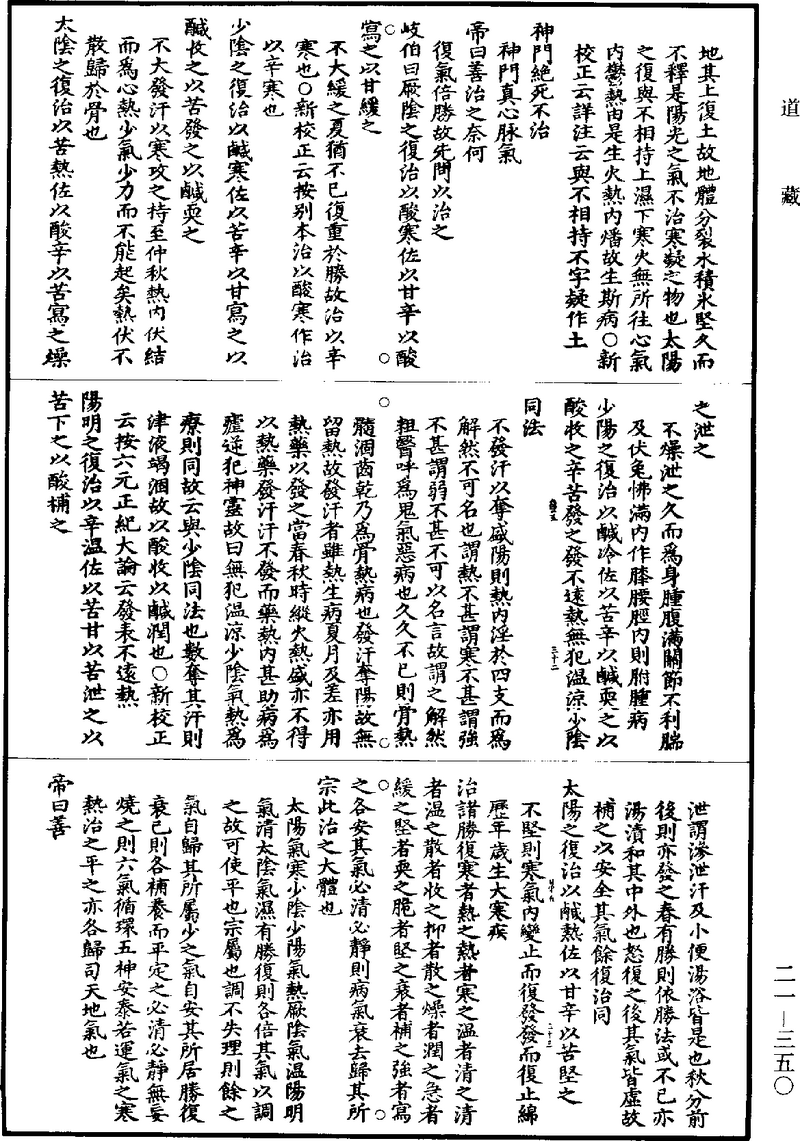 道藏
地其上復土故地體分裂水積冰堅久而
不釋是陽光之氣不治寒凝之物也太陽
之復與不相持上濕下寒火無所往心氣
內鬱熱由是生火熱內燔故生斯病○新
校正云詳注云與不相持不字疑作土
神門絕死不治
神門真心脉氣
帝曰善治之奈何
復氣倍勝故先問以治之
岐伯曰厥陰之復治以酸寒佐以甘辛以酸
寫之以甘緩之
不大緩之夏猶不已復重於勝故治以辛
寒也○新校正云按别本治以酸寒作治
以辛寒也
少陰之復治以鹹寒佐以苦辛以甘寫之以
酸收之以苦發之以鹹耎之
不大發汗以寒攻之持至仲秋熱內伏結
而爲心熱少氣少力而不能起矣熱伏不
散歸於骨也
太陰之復治以苦熱佐以酸辛以苦寫之燥
之泄之
不燥泄之久而爲身腫腹滿關節不利腨
及伏兔怫滿內作膝腰脛內則胕腫病
少陽之復治以鹹冷佐以苦辛以鹹耎之以
酸收之辛苦發之發不遠熱無犯温涼少陰
同法
不發汗以奪盛陽則熱內淫於四支而爲
解㑊不可名也謂熱不甚謂寒不甚謂強
不甚謂弱不甚不可以名言故謂之解㑊
粗醫呼爲鬼氣惡病也久久不已則骨熱
髓涸齒乾乃爲骨熱病也發汗奪陽故無
留熱故發汗者雖熱生病夏月及差亦用
熱藥以發之當春秋時縱火熱盛亦不得
以熱藥發汗汗不發而藥熱內甚助病爲
瘧逆犯神靈故曰無犯温涼少陰氣熱爲
療則同故云與少陰同法也數奪其汗則
津液竭涸故以酸收以鹹潤也○新校正
云按六元正紀大論云發表不遠熱
陽明之復治以辛温佐以苦甘以苦泄之以
苦下之以酸補之
泄謂滲泄汗及小便湯浴皆是也秋分前
後則亦發之春有勝則依勝法或不已亦
湯漬和其中外也怒復之後其氣皆虛故
補之以安全其氣餘復治同
太陽之復治以鹹熱佐以甘辛以苦堅之
不堅則寒氣內變止而復發發而復止綿
歷年歲生大寒疾
治諸勝復寒者熱之熱者寒之温者清之清
者温之散者收之抑者散之燥者潤之急者
緩之堅者耎之脆者堅之衰者補之強者寫
之各安其氣必清必靜則病氣衰去歸其所
宗此治之大體也
太陽氣寒少陰少陽氣熱厥陰氣温陽明
氣清太陰氣濕有勝復則各倍其氣以調
之故可使平也宗屬也調不失理則餘之
氣自歸其所屬少之氣自安其所居勝復
衰已則各補養而平定之必清必靜無妄
燒之則六氣循環五神安泰若運氣之寒
熱治之平之亦各歸司天地氣也
帝曰善
二一—三五〇